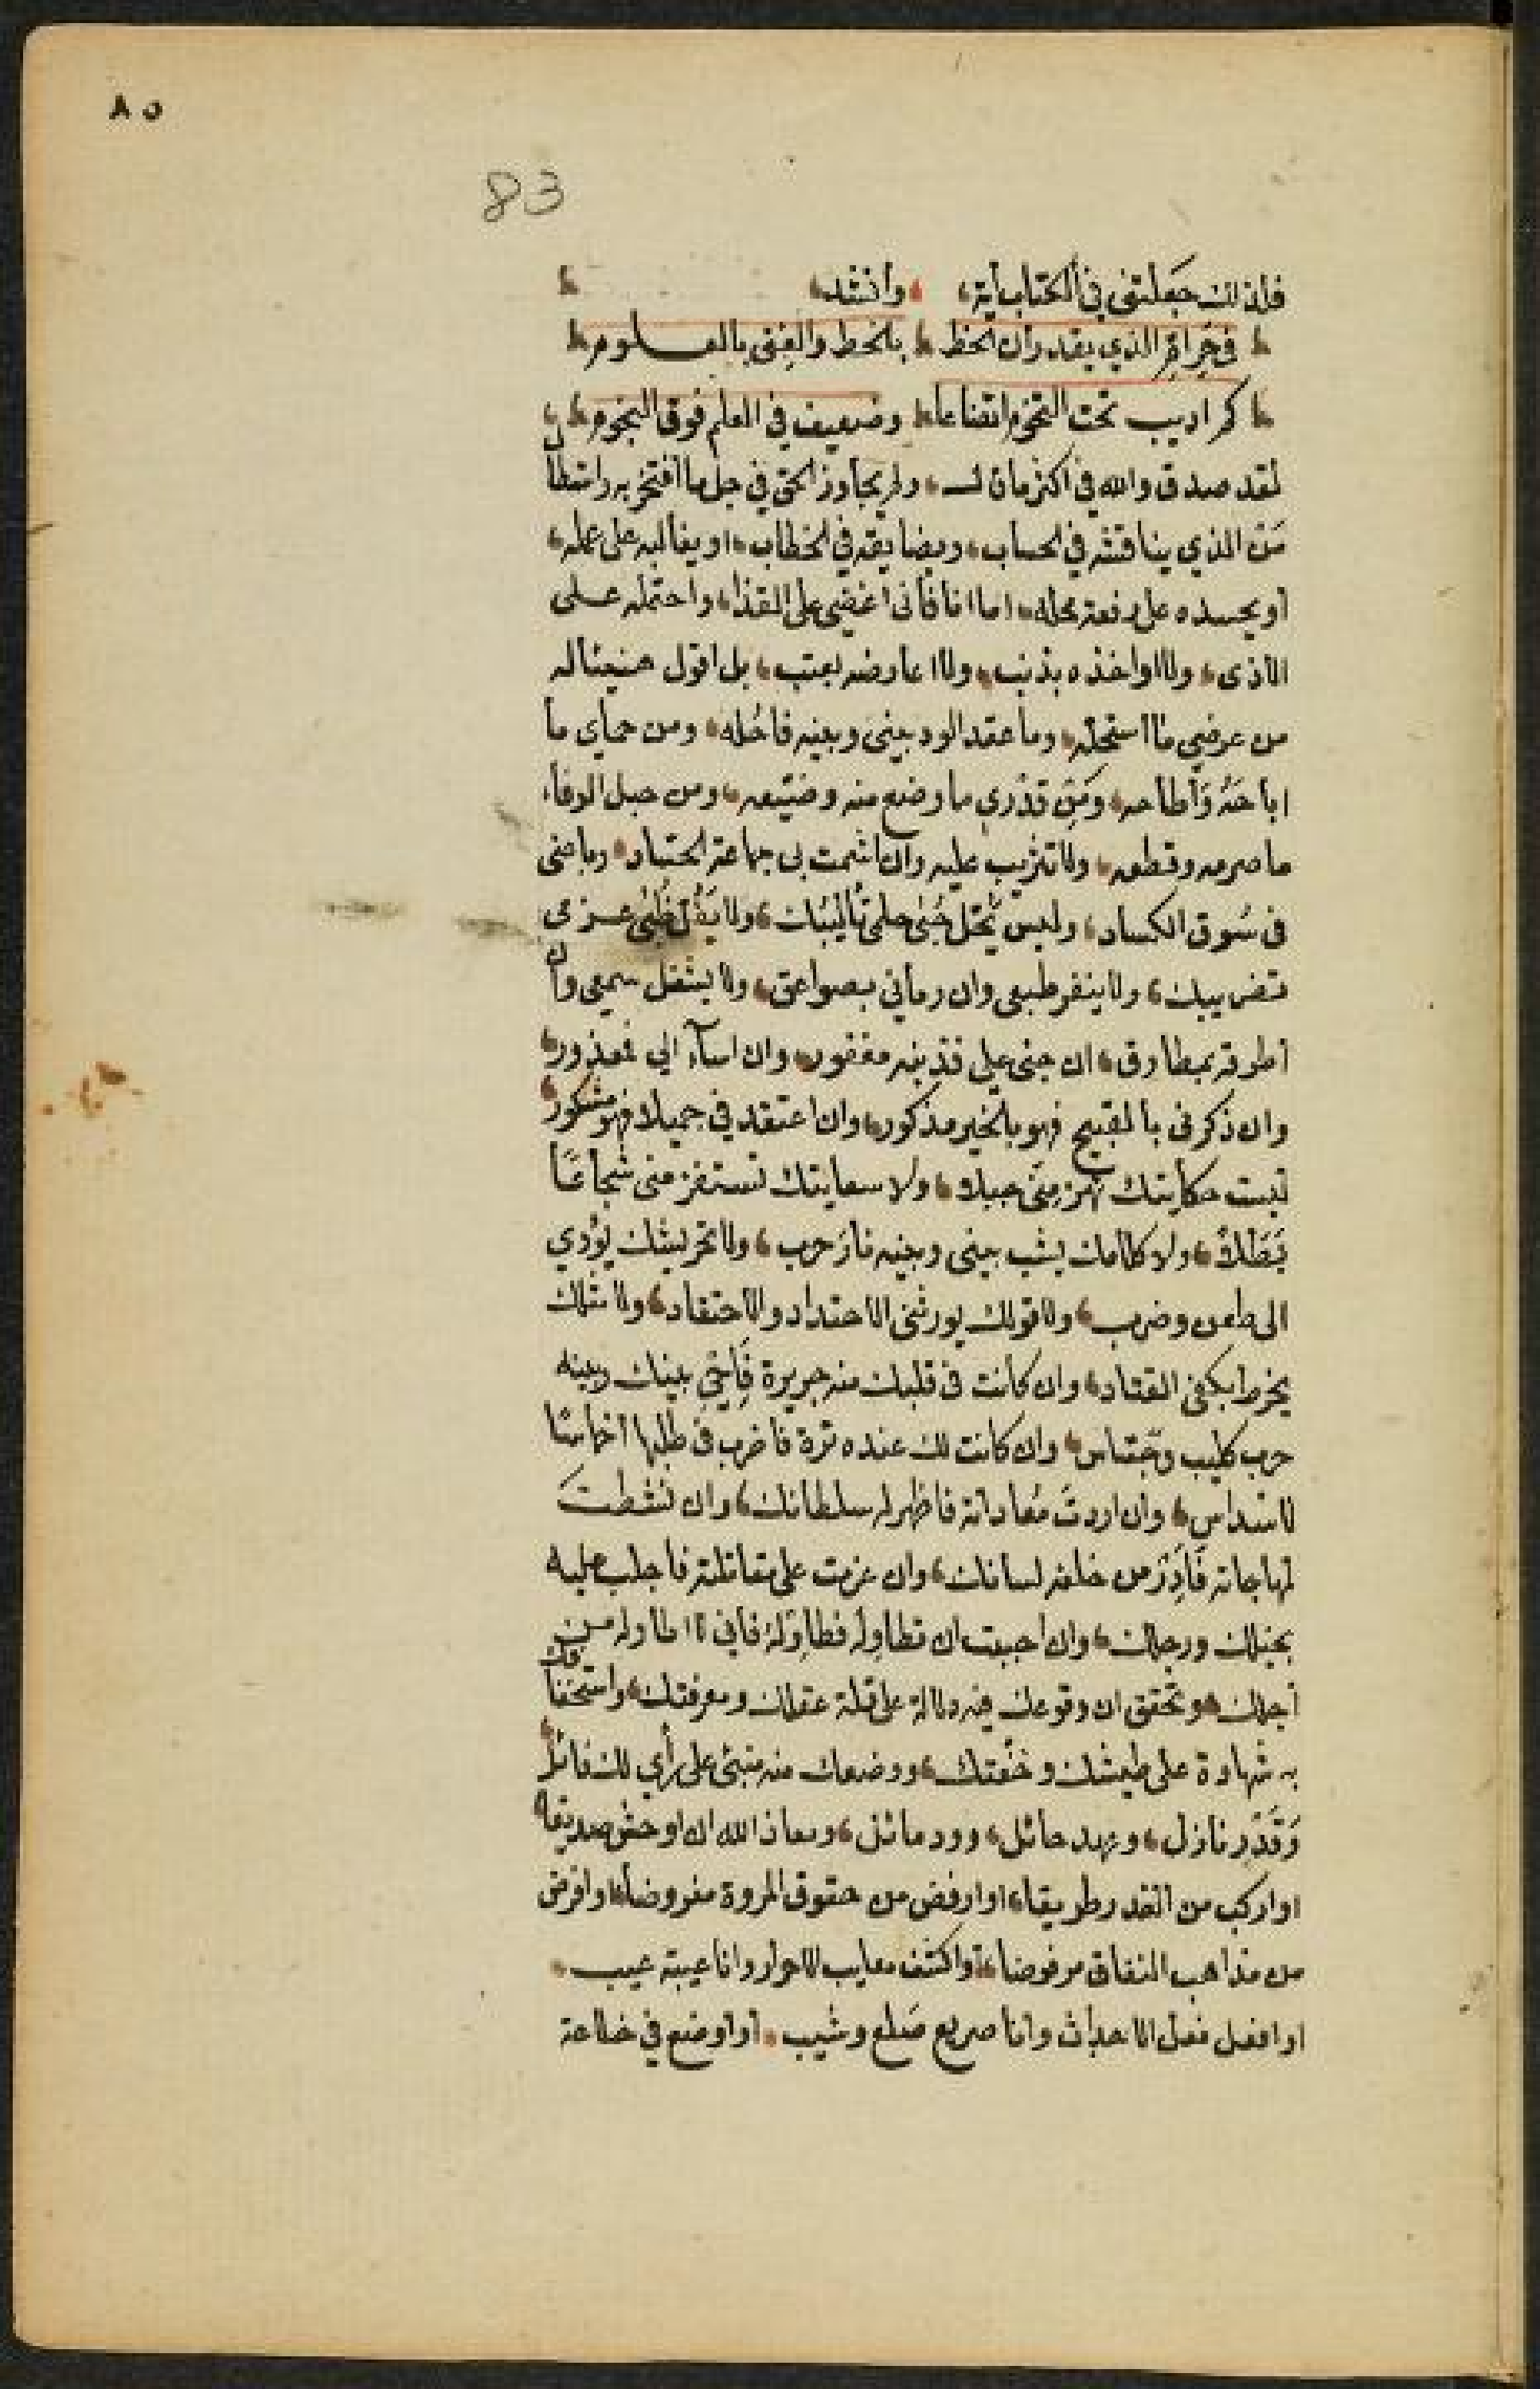 ٨٥
83
فلذلك جعلتنى في الكتاب آية، وأنشد،
في حِرامِّ الذي يقدر ان الحظ بالخط والغنى بالعلوم
كم اديب تحت التخوم اتضاعا وضعيف في العلم فوق النجوم
لقد صدق والله في اكثر ما قال، ولم يجاوز الحق في جل ما افتخر به واستطال
مَن الذي يناقشه في الحساب، ويضايقه في الخطاب، او يغالبه على علمه،
أو يحسده على رفعة محله، اما انا فأنى اغضى على القذا، واحتمله عـلى
الأذى، ولا اواخذه بذنب، ولا اعارضه بعتب، بل اقول هنيئاله
من عرضي ما استحله، وما عقد الود بيني وبينه فأحله، ومن حمأي ما
اباحَهُ وَأطأحه، ومِن قدْري ما وضع منه وضيّعه، ومن حبل الوفاء
ما صرمه وقطعه، ولا تثريب عليه وان اشمت بى جماعة الحساد، وباعنى
فى سُوق الكساد، وليس يُحَل حُبَى حلمى تأليبُك، ولا يَفُل ظُبَى عـزمى
تضريبك، ولا ينفر طبعى وان رمأني بصواعق، ولا يشغل سمعى وان
أطرقه بمطارق، ان جنى على فذنبه مغفور، وان اسآء الي فمعذور،
وان ذكرنى بالقبيح فهو بالخير مذكور، وان اعتقد في جميلا فهو مشكور،
ليست حكايتك تهز مِنّى جبلا، ولا سعايتك تستفز منى شجاعًا
بَطَلاً، ولا كلامك يشب بينى وبينه نارَ حرب، ولا تحريشك يؤدي
الى طعن وضرب، ولا قولك يورثنى الاحتداد والاحتقاد، ولا مثلك
يخرط بكفى القتاد، وان كأنت فى قلبك منه جريرة فأبقِ بينك وبينه
حرب كليب وجَسّاس، وان كانت لك عنده ترة فاضرب فى طلبها أخماسًا
لاسداس، وان اردتَ مُعاداته فاظهر له سلطانك، وان نشطتَ
لهاجاته فَأَدِرْ من خلفه لسانك، وان عزمت على مقاتلته فأجلب عليه
بخيلك ورجلك، وان احببت ان تطاوله فطاوِلهُ فأنى لا اطاوله من
أجلك، وتحقق ان وقوعك فيه دلالة على قلة عقلك ومعرفتك، واستخفافك
به شهادة على طيشك وخفّتك، ووضعك منه منبئ على رأي لك فائل،
وَقَدْرٍ نازل، وعهد حائل، وود مائل، ومعاذ الله ان اوحش صديقا
او اركب من الغدر طريقا، او ارفض من حقوق المروة مفروضا، او افرض
من مذاهب النفاق مرفوضا، أو اكشف معايب الاحرار وانا عيبة عيب،
او افعل فعل الاحداث وأنا صريع صَلع وشيب، أو اوضع في خلاعة